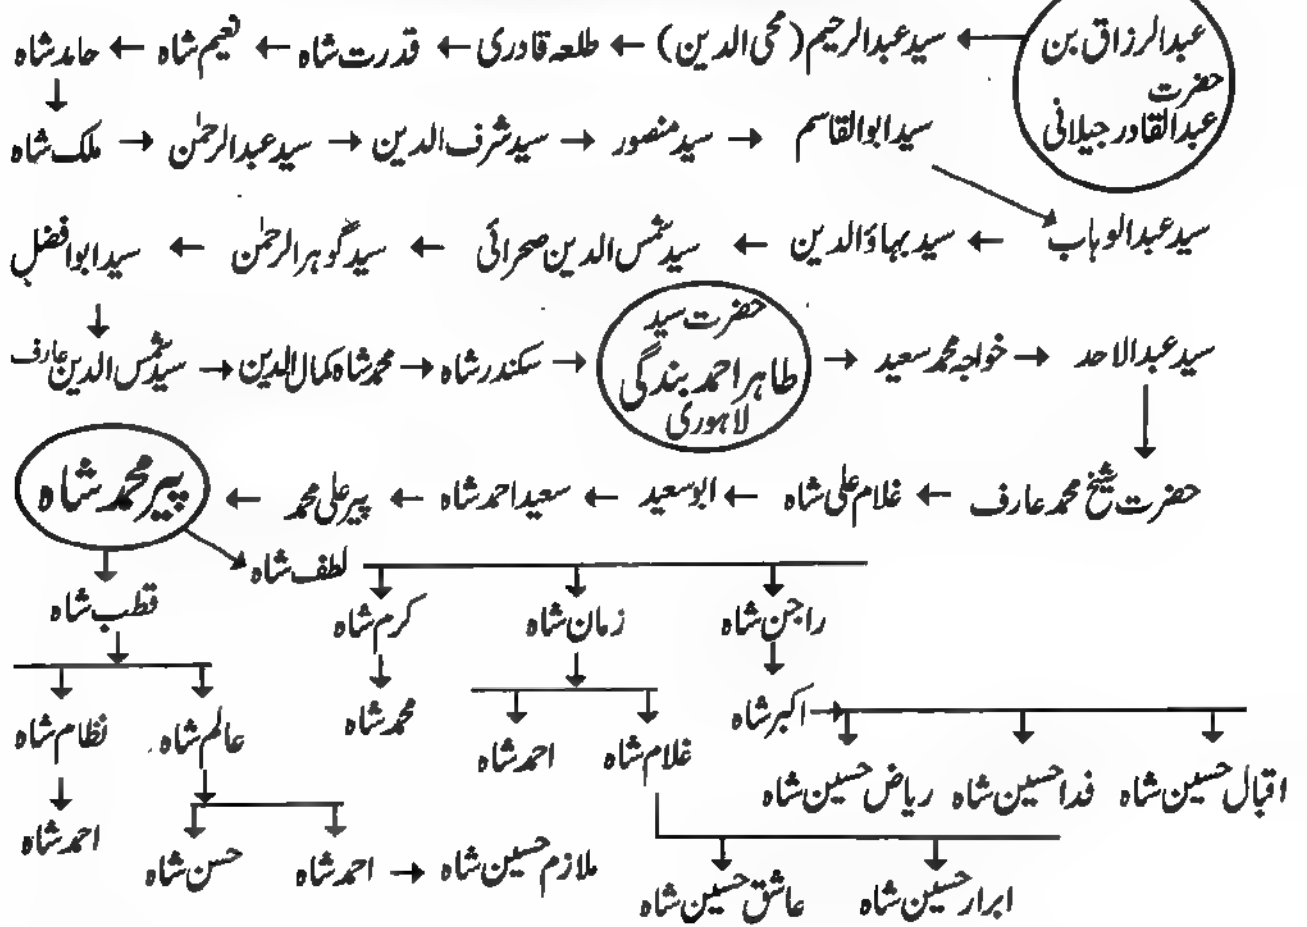 عبدالرزاق بن حضرت عبدالقادر جیلانی ← سید عبدالرحیم (محی الدین) ← طلعہ قادری ← قدرت شاہ ← نعیم شاہ ← حامد شاہ
↓
سید ابوالقاسم → سید منصور → سید شرف الدین → سید عبدالرحمٰن → ملک شاہ
سید عبدالوہاب ← سید بہاؤالدین ← سید شمس الدین صحرائی ← سید گوہرالرحمٰن ← سید ابوافضل
↓
سید عبدالاحد → خواجہ محمد سعید → حضرت سید طاہر احمد بندگی لاہوری → سکندر شاہ → محمد شاہ کمال الدین → سید شمس الدین عارف
حضرت شیخ محمد عارف ← غلام علی شاہ ← ابوسعید ← سعید احمد شاہ ← پیر علی محمد ← پیر محمد شاہ
لطف شاہ
راجن شاہ زمان شاہ کرم شاہ قطب شاہ
اکبر شاہ محمد شاہ عالم شاہ نظام شاہ
غلام شاہ احمد شاہ
اقبال حسین شاہ فدا حسین شاہ ریاض حسین شاہ
ملازم حسین شاہ ← احمد شاہ حسن شاہ احمد شاہ
ابرار حسین شاہ عاشق حسین شاہ